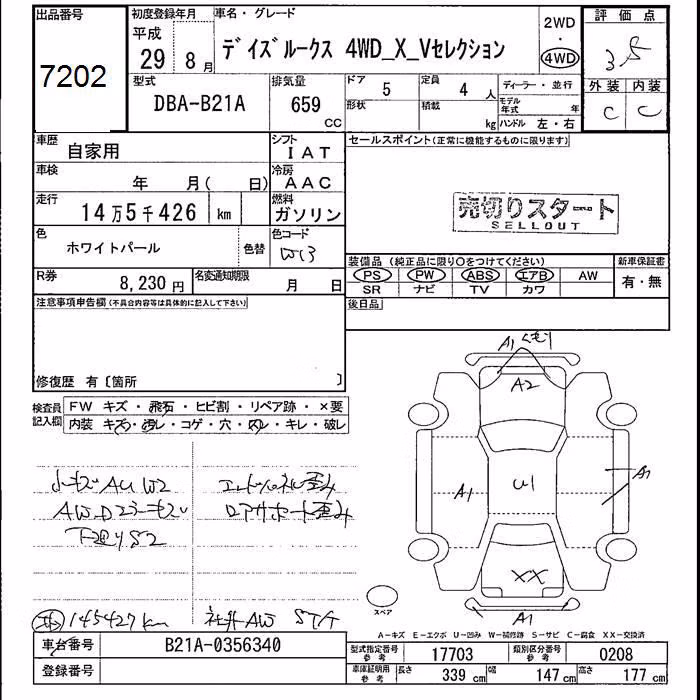 出品番号
7202
初度登録年月
平成
29 8月
車名・グレード
ﾃﾞｲｽﾞﾙｰｸｽ 4WD_X_Vｾﾚｸｼｮﾝ
2WD
・
4WD
評価点
3.5
外装 内装
C C
型式
DBA-B21A
排気量
659
CC
ドア
5
定員
4 人
形状
積載
kg
ディーラー・並行
モデル年式 年
ハンドル 左・右
車歴
自家用
シフト
IAT
車検
年 月( 日)
冷房
AAC
走行
14万5千426 km
燃料
ガソリン
色
ホワイトパール
色替
色コード
W13
R券
8,230円
名変通知期限
月 日
セールスポイント(正常に機能するものに限ります)
売切りスタート
SELLOUT
装備品(純正品に限り○をつけてください)
PS PW ABS エアB AW
SR ナビ TV カワ
新車保証書
有・無
後日品
注意事項申告欄(不具合内容等は具体的に記入して下さい)
修復歴 有〔箇所 〕
検査員記入欄
FW キズ・飛石・ヒビ割・リペア跡・×要
内装 キズ・汚レ・コゲ・穴・凹レ・キレ・破レ
小キズAU W2
AW D23 小キズ
下廻りS2
エンドパネル歪み
ロアサポート歪み
145427km
社外AW STA
A1 くもり
A2
A1
U1
A1
XX
A1
スペア
A-キズ E-エクボ U-凹み W-補修跡 S-サビ C-腐食 XX-交換済
車台番号
B21A-0356340
登録番号
型式指定番号
参考
17703
類別区分番号
参考
0208
車庫証明用
参考
長さ 339 cm 幅 147 cm 高さ 177 cm